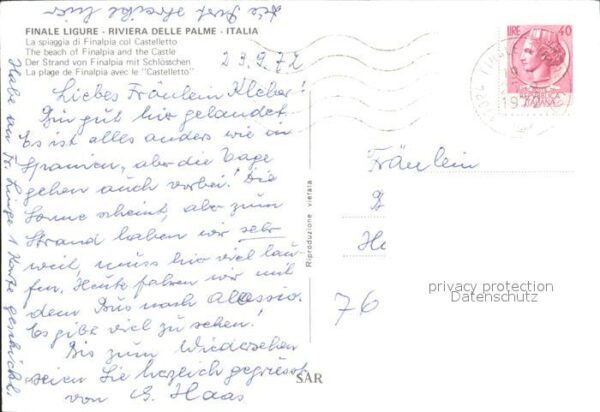 FINALE LIGURE - RIVIERA DELLE PALME - ITALIA
La spiaggia di Finalpia col Castelletto
The beach of Finalpia and the Castle
Der Strand von Finalpia mit Schlösschen
La plage de Finalpia avec le "Castelletto"
23.9.72
Liebes Fräulein Kleber!
Bin gut hier gelandet.
Es ist alles anders wie in
Spanien, aber die Tage
gehen auch vorbei! Die
Sonne scheint, aber zum
Strand haben wir sehr
weit, muss hier viel lau-
fen. Heute fahren wir mit
dem Bus nach Alassio.
Es gibt viel zu sehen!
Bis zum Wiedersehen
seien Sie herzlich gegrüsst
von G. Haas
Habe an Fr. Linge 1 Karte geschickt,
die
hier
Riproduzione vietata
SAR
LIRE 40
ITALIANA
19
Fräulein
76
privacy protection
Datenschutz